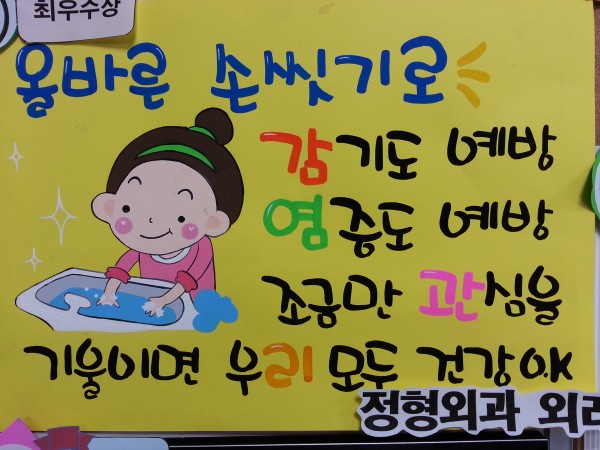 최우수상
올바른 손씻기로
감기도 예방
염증도 예방
조금만 관심을
기울이면 우리 모두 건강O.K
정형외과 외래